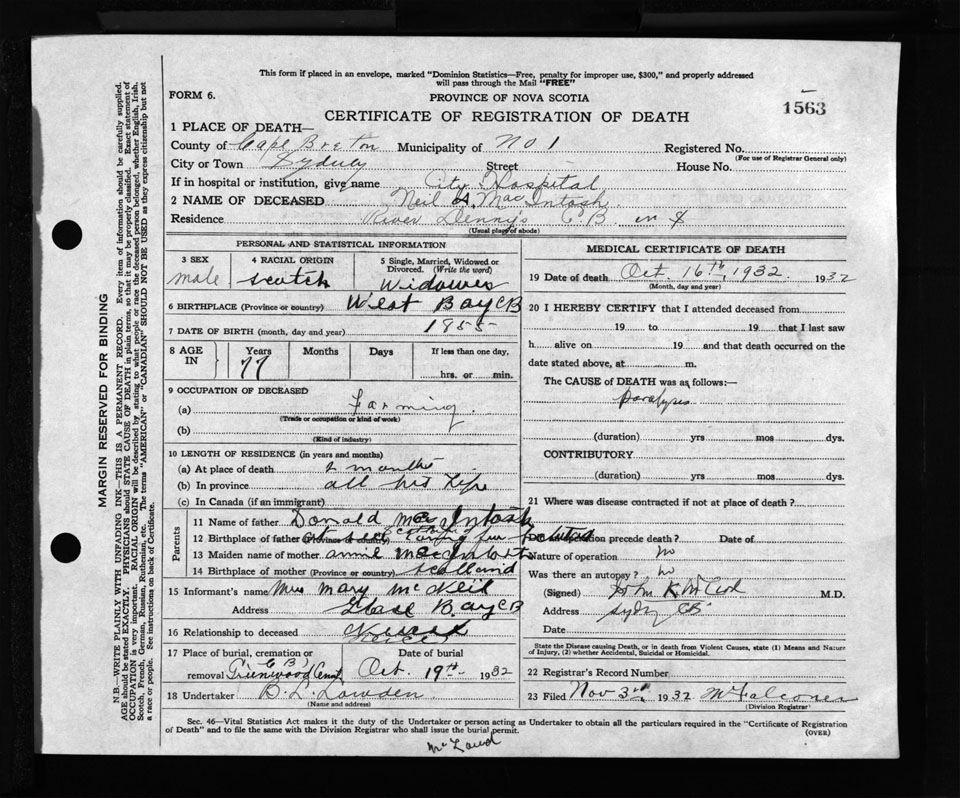 This form if placed in an envelope, marked "Dominion Statistics—Free, penalty for improper use, $300," and properly addressed
will pass through the Mail "FREE"
FORM 6.
PROVINCE OF NOVA SCOTIA
1563
CERTIFICATE OF REGISTRATION OF DEATH
1 PLACE OF DEATH—
County of Cape Breton Municipality of No 1 Registered No.
(For use of Registrar General only)
City or Town Sydney Street House No.
If in hospital or institution, give name City Hospital
2 NAME OF DECEASED Neil A. MacIntosh
Residence River Denny's C.B.
(Usual place of abode)
PERSONAL AND STATISTICAL INFORMATION
3 SEX male
4 RACIAL ORIGIN scotch
5 Single, Married, Widowed or Divorced. (Write the word) Widower
6 BIRTHPLACE (Province or country) West Bay CB
7 DATE OF BIRTH (month, day and year) 1855
8 AGE IN Years Months Days If less than one day,
77 hrs. or min.
9 OCCUPATION OF DECEASED
(a) Farming
(Trade or occupation or kind of work)
(b)
(Kind of industry)
10 LENGTH OF RESIDENCE (in years and months)
(a) At place of death 2 months
(b) In province all his life
(c) In Canada (if an immigrant)
Parents
11 Name of father Donald MacIntosh
12 Birthplace of father (Province or country)
13 Maiden name of mother Annie MacIntosh
14 Birthplace of mother (Province or country) Scotland
15 Informant's name Mrs Mary McNeil
Address Glace Bay CB
16 Relationship to deceased
17 Place of burial, cremation or removal Date of burial
(CB) Greenwood Cem Oct. 19th 1932
18 Undertaker B. L. Lowden
(Name and address)
MEDICAL CERTIFICATE OF DEATH
19 Date of death Oct. 16th, 1932. 1932
(Month, day and year)
20 I HEREBY CERTIFY that I attended deceased from
19 to 19 that I last saw
h alive on 19 and that death occurred on the
date stated above, at m.
The CAUSE of DEATH was as follows:—
Paralysis
(duration) yrs mos dys.
CONTRIBUTORY
(duration) yrs mos dys.
21 Where was disease contracted if not at place of death?
Did operation precede death? Date of
Nature of operation no
Was there an autopsy? no
(Signed) M.D.
Address Sydney CB
Date
State the Disease causing Death, or in death from Violent Causes, state (1) Means and Nature
of Injury, (2) whether Accidental, Suicidal or Homicidal.
22 Registrar's Record Number
23 Filed Nov 3rd, 1932 McFalconer
(Division Registrar)
Sec. 46—Vital Statistics Act makes it the duty of the Undertaker or person acting as Undertaker to obtain all the particulars required in the "Certificate of Registration
of Death" and to file the same with the Division Registrar who shall issue the burial permit.
(OVER)
MARGIN RESERVED FOR BINDING
N.B.—WRITE PLAINLY WITH UNFADING INK—THIS IS A PERMANENT RECORD. Every item of information should be carefully supplied.
AGE should be stated EXACTLY. PHYSICIANS should STATE CAUSE OF DEATH in plain terms, so that it may be properly classified. Exact statement of
OCCUPATION is very important. RACIAL ORIGIN will be described by stating to what people or race the deceased person belonged, whether English, Irish,
Scotch, French, German, Russian, Ruthenian, etc. The terms "AMERICAN" or "CANADIAN" SHOULD NOT BE USED as they express citizenship but not
a race or people. See instructions on back of Certificate.